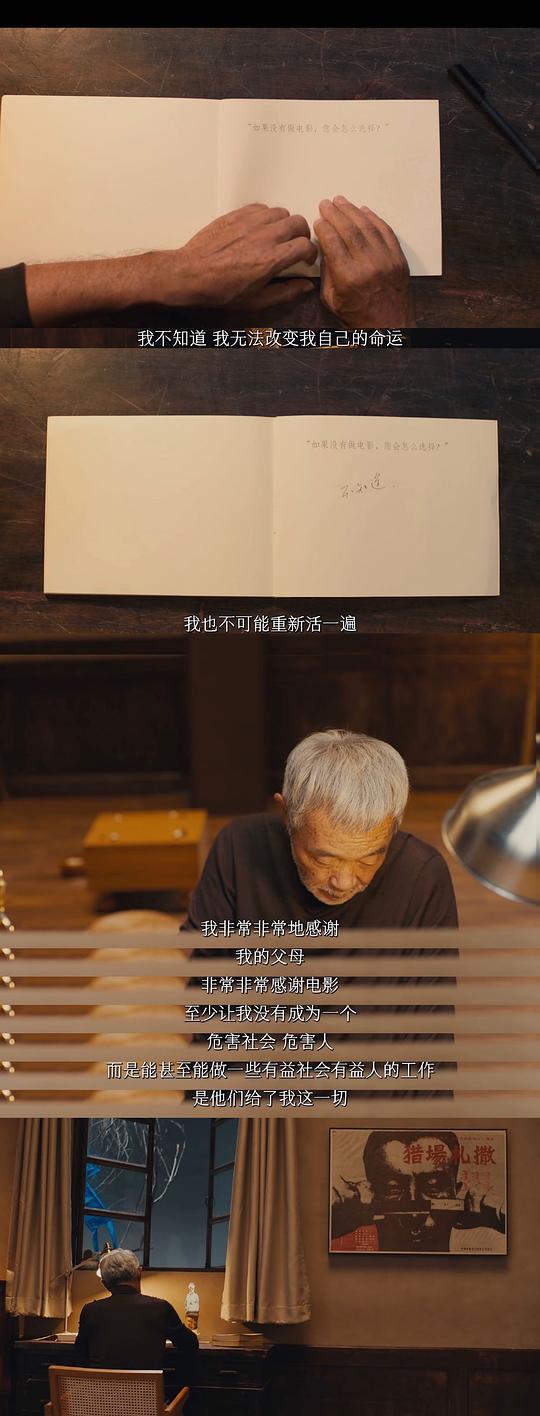 “如果没有做电影，您会怎么选择？”
我不知道 我无法改变我自己的命运
“如果没有做电影，您会怎么选择？”
不知道..
我也不可能重新活一遍
我非常非常地感谢
我的父母
非常非常感谢电影
至少让我没有成为一个
危害社会 危害人
而是能甚至能做一些有益社会有益人的工作
是他们给了我这一切
猎場札撒